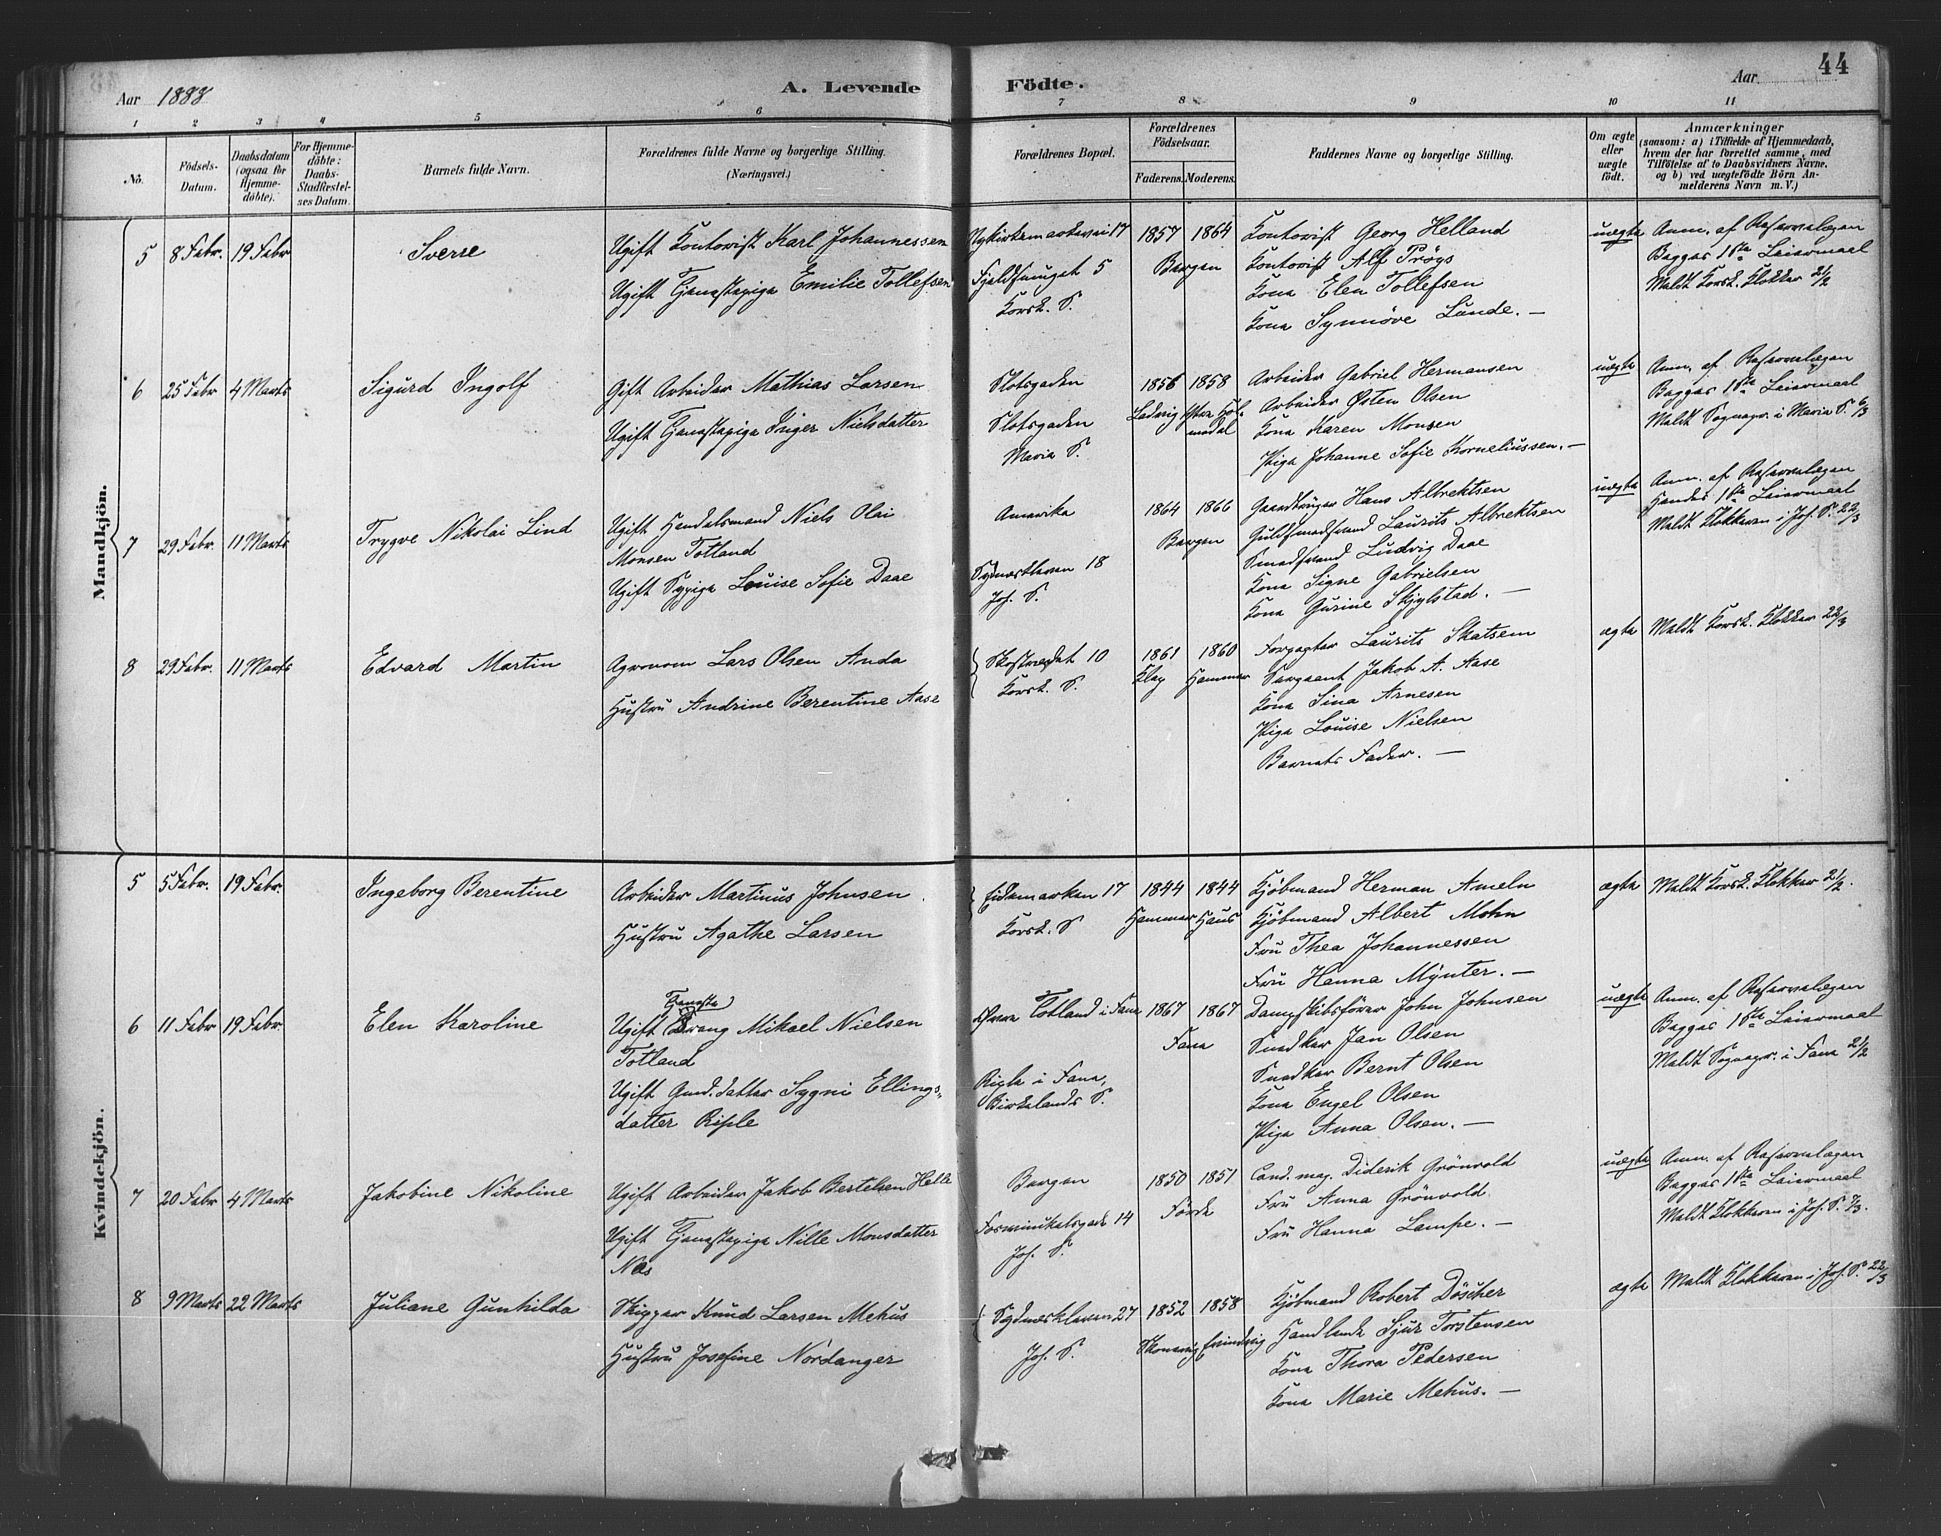 Aar 1888
A. Levende Födte.
Aar
44
1 2 3 4 5 6 7 8 9 10 11
No.
Födsels-Datum.
Daabsdatum (ogsaa for Hjemme-döbte).
For Hjemme-döbte: Daabs-Stadfæstel-ses Datum.
Barnets fulde Navn.
Forældrenes fulde Navne og borgerlige Stilling. (Næringsvei.)
Forældrenes Bopæl.
Forældrenes Födselsaar.
Faderens. Moderens.
Faddernes Navne og borgerlige Stilling.
Om ægte eller uægte födt.
Anmærkninger
(saasom: a) i Tilfælde af Hjemmedaab,
hvem der har forrettet samme, med
Tilföielse af to Daabsvidners Navne.
og b) ved uægtefödte Börn An-
melderens Navn m. V.)
Mandkjön.
5 8 Febr. 19 Febr
Sverre
Ugift Kontorist Karl Johannessen
Ugift Tjenestepige Emilie Tollefsen
Nykirkemarkevei 17
5
Korsk. S.
1857 1864
Bergen
Kontorist Georg Helland
Kontorist Alf Pröys
Kona Elen Tollefsen
Kona Synnöve Lunde. —
uægte
Anm. af Reservelægen
Begges 1ste Leiermaal
Meldt Korsk. Klokker 21/2
6 25 Febr 4 Marts
Sigurd Ingolf
Gift Arbeider Mathias Larsen
Ugift Tjenestepige Inger Nielsdatter
Slotsgaden
Slotsgaden
Maria S.
1856 1858
Ladvig Ytre Hol-
medal
Arbeider Gabriel Hermansen
Arbeider Østen Olsen
Kona Karen Monsen
Pige Johanne Sofie Korneliussen. —
uægte
Anm. af Reservelægen
Begges 1ste Leiermaal
Meldt Sognepr. i Maria S. 6/3
7 29 Febr. 11 Marts
Trygve Nikolai Lind
Ugift Handelsmand Niels Olai
Monsen Totland
Ugift Sypige Louise Sofie Daae
Amerika
Sydneskleven 18
Joh. S.
1864 1866
Bergen
Gaardbruger Hans Albrektsen
Guldsmedsvend Laurits Albrektsen
Smedsvend Ludvig Daae
Kona Signe Gabrielsen
Kona Gurine Skjylstad. —
uægte
Anm. af Reservelægen
Hendes 1ste Leiermaal
Meldt Klokkeren i Joh. S. 22/3
8 29 Febr. 11 Marts
Edvard Martin
Agronom Lars Olsen Anda
Hustru Andrine Berentine Aase
Skostrædet 10
Korsk. S.
1861 1860
Klep Hammer
Forpagter Laurits Skatsem
Sergeant Jakob A. Aase
Kona Sina Arnesen
Pige Louise Nielsen
Barnets Fader. —
ægte
Meldt Korsk. Klokker 22/3
Kvindekjön.
5 5 Febr. 19 Febr.
Ingeborg Berentine
Arbeider Martinus Johnsen
Hustru Agathe Larsen
Eidemarken 17
Korsk. S
1844 1844
Hammer Haus
Kjöbmand Herman Ameln
Kjöbmand Albert Mohn
Fru Thea Johannessen
Fru Hanna Mÿnter. —
ægte
Meldt Korsk. Klokker 21/2.
6 11 Febr 19 Febr.
Elen Karoline
Tjeneste
Ugift Dreng Mikael Nielsen
Totland
Ugift Gmd. datter Sygni Ellings-
datter Riple
Totland i Fana
Riple i Fana,
Birkelands S.
1867 1867
Fana
Dampskibsförer John Johnsen
Snedker Jan Olsen
Snedker Bernt Olsen
Kona Engel Olsen
Pige Anna Olsen. —
uægte
Anm. af Reservelægen
Begges 1ste Leiermaal
Meldt Sognepr. i Fana 21/2
7 20 Febr 4 Marts
Jakobine Nikoline
Ugift Arbeider Jakob Bertelsen Helle
Ugift Tjenestepige Nille Monsdatter
Næs
Bergen
14
Joh. S.
1850 1851
Förde
Cand. mag. Diderik Grönvold
Fru Anna Grönvold
Fru Hanna Lampe. —
uægte
Anm. af Reservelægen
Begges 1ste Leiermaal
Meldt Klokkeren i Joh. S. 7/3.
8 9 Marts 22 Marts
Juliane Gunhilda
Skipper Knud Larsen Mehus
Hustru Josefine Nordanger
Sydneskleven 27
Joh. S.
1852 1858
Skonevig Evindvig
Kjöbmand Robert Döscher
Handlende Sjur Torstensen
Kona Thora Pedersen
Kona Marie Mehus. —
ægte
Meldt Klokkeren i Joh. S. 22/3